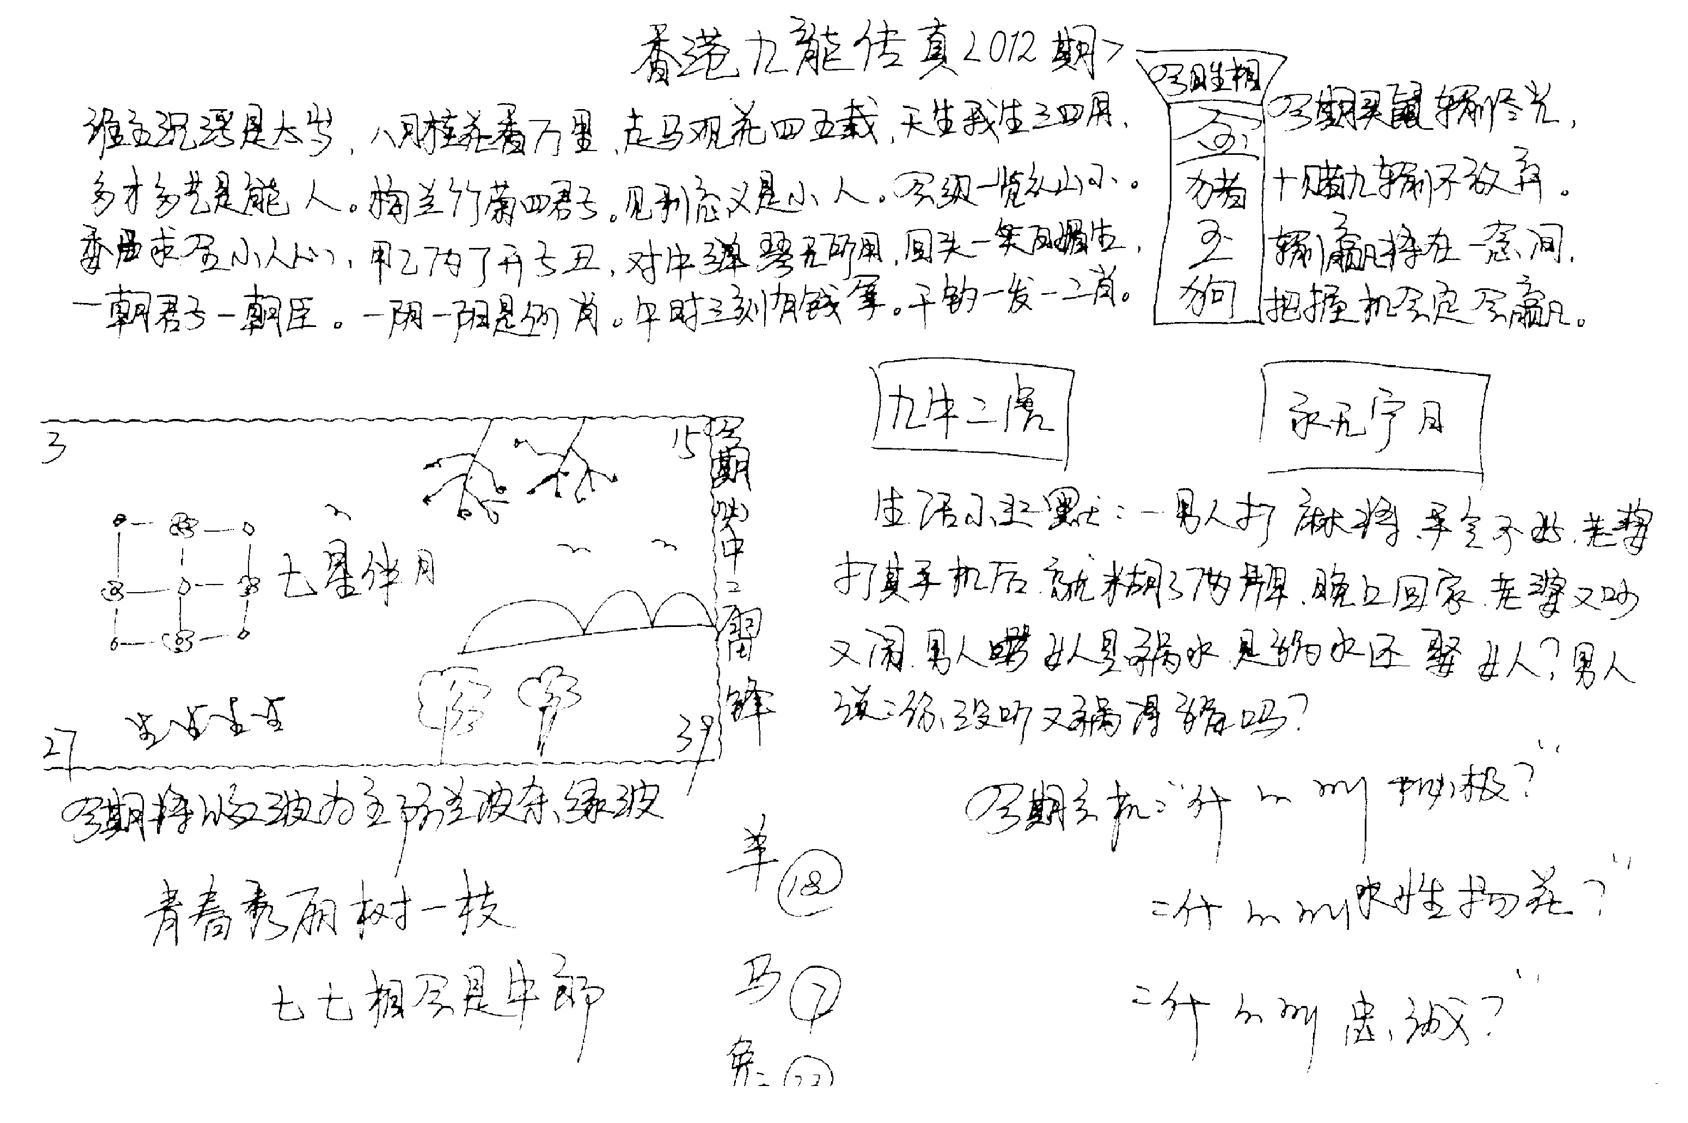 香港九龍传真2012期
今期生相
金
猪
玉
狗
谁主沉浮是太岁，八月桂花香万里，走马观花四五载，天生我生三四月，
多才多艺是能人。梅兰竹菊四君子。见利忘义是小人。会级一览众山小。
委曲求全小人心，甲乙丙丁开子丑，对牛弹琴无所用，回头一笑百媚生，
一朝君子一朝臣。一阴一阳是何肖。午时三刻有钱拿。千钧一发一二肖。
今期买鼠输个光，
十赌九输不放弃。
输赢将在一念间，
把握机会定会赢。
九牛二虎
永无宁日
3
15
27
39
七星伴月
今期必中二雷锋
生 生 生 生
生活小幽默：一男人打麻将，手气不好，老婆
打其手机后，就糊了两牌，晚上回家，老婆又吵
又闹，男人骂女人是祸水，是祸水还娶女人？男人
说：你没听又祸得福吗？
今期将以红波为主防兰波杂绿波
青春秀丽树一枝
七七相会是牛郎
羊 18
马 7
兔 23
今期玄机："什么叫积极？"
"什么叫水性扬花？"
"什么叫忠诚？"